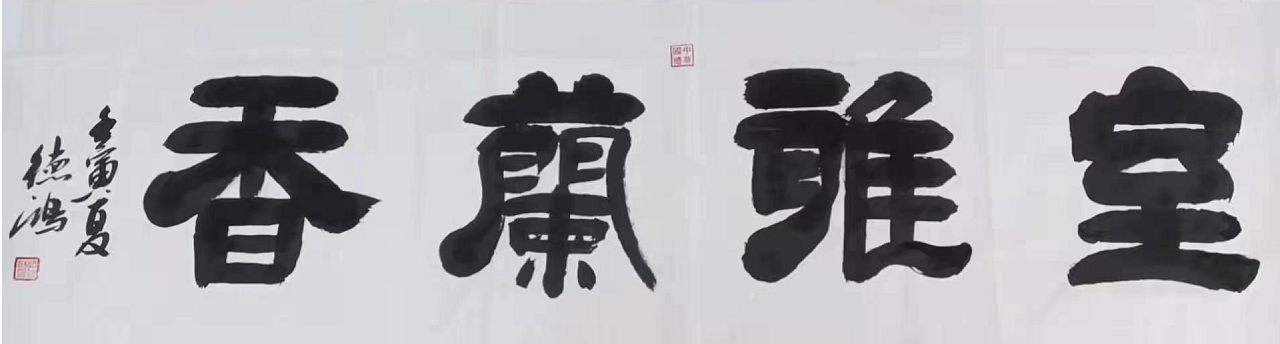 室雅蘭香
壬寅夏
德鴻
中華國禮